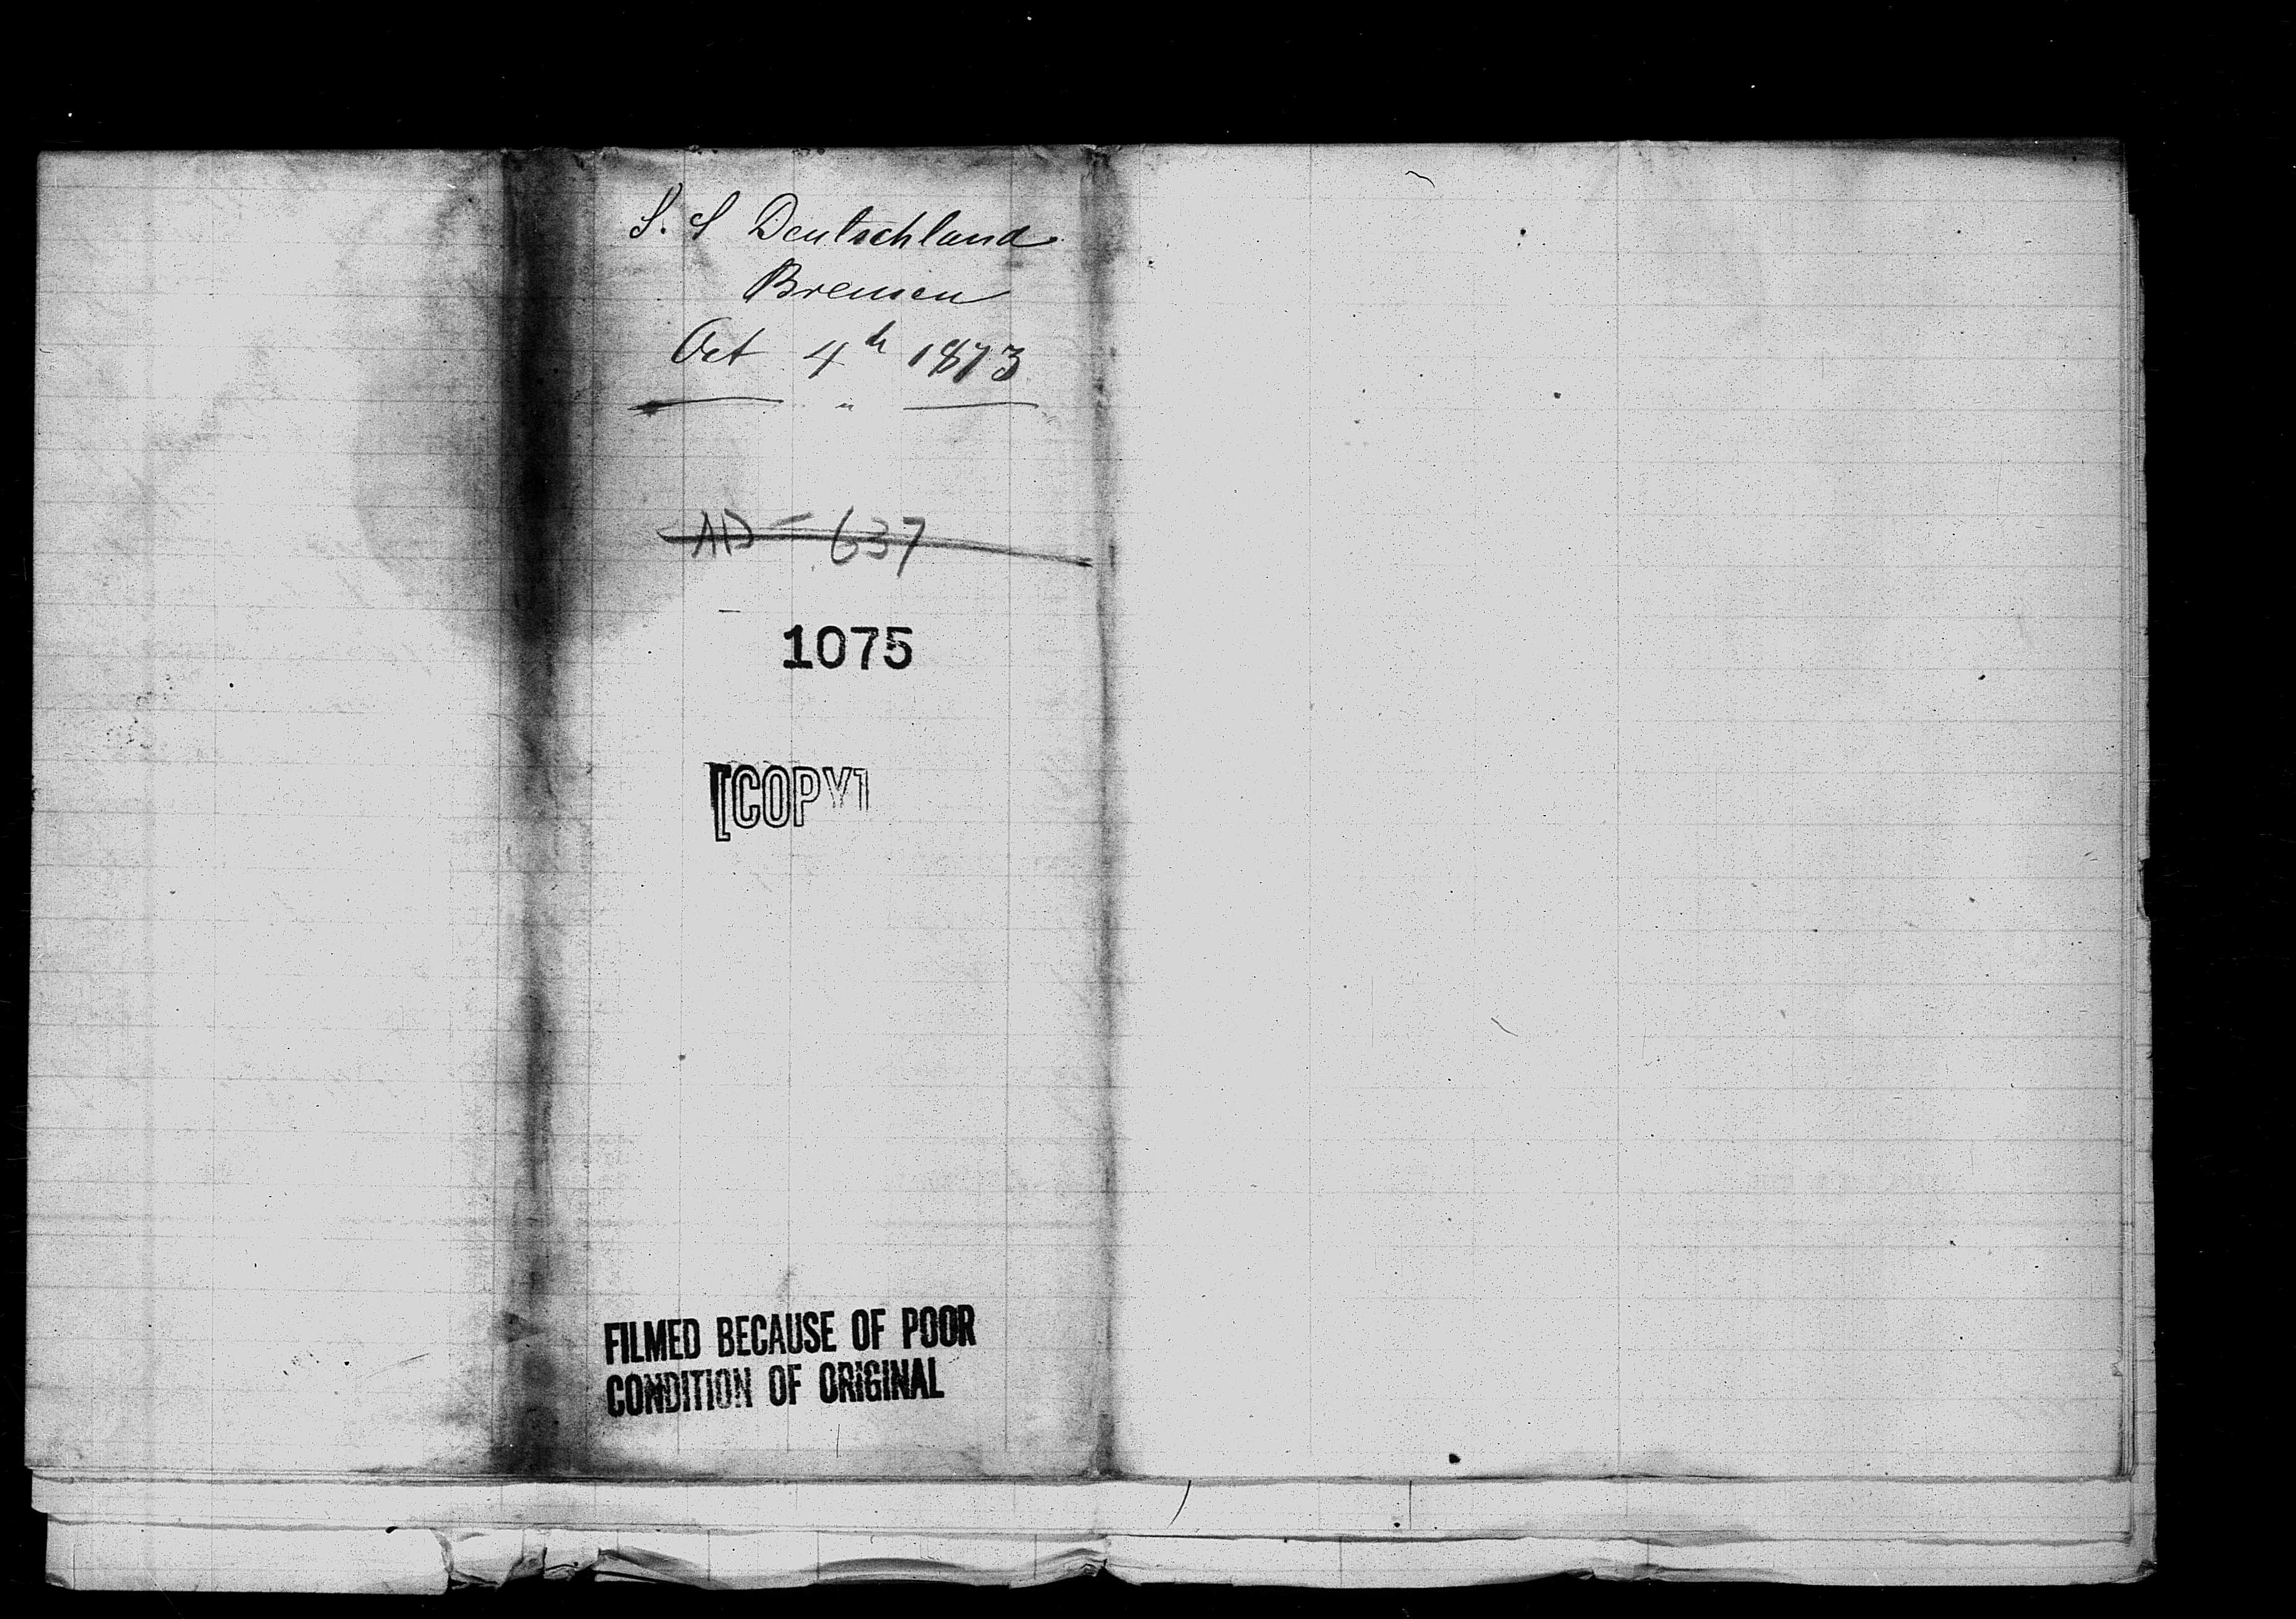 S. S Deutschland
Bremen
Oct 4th 1873
AD - 637
1075
[COPY]
FILMED BECAUSE OF POOR
CONDITION OF ORIGINAL